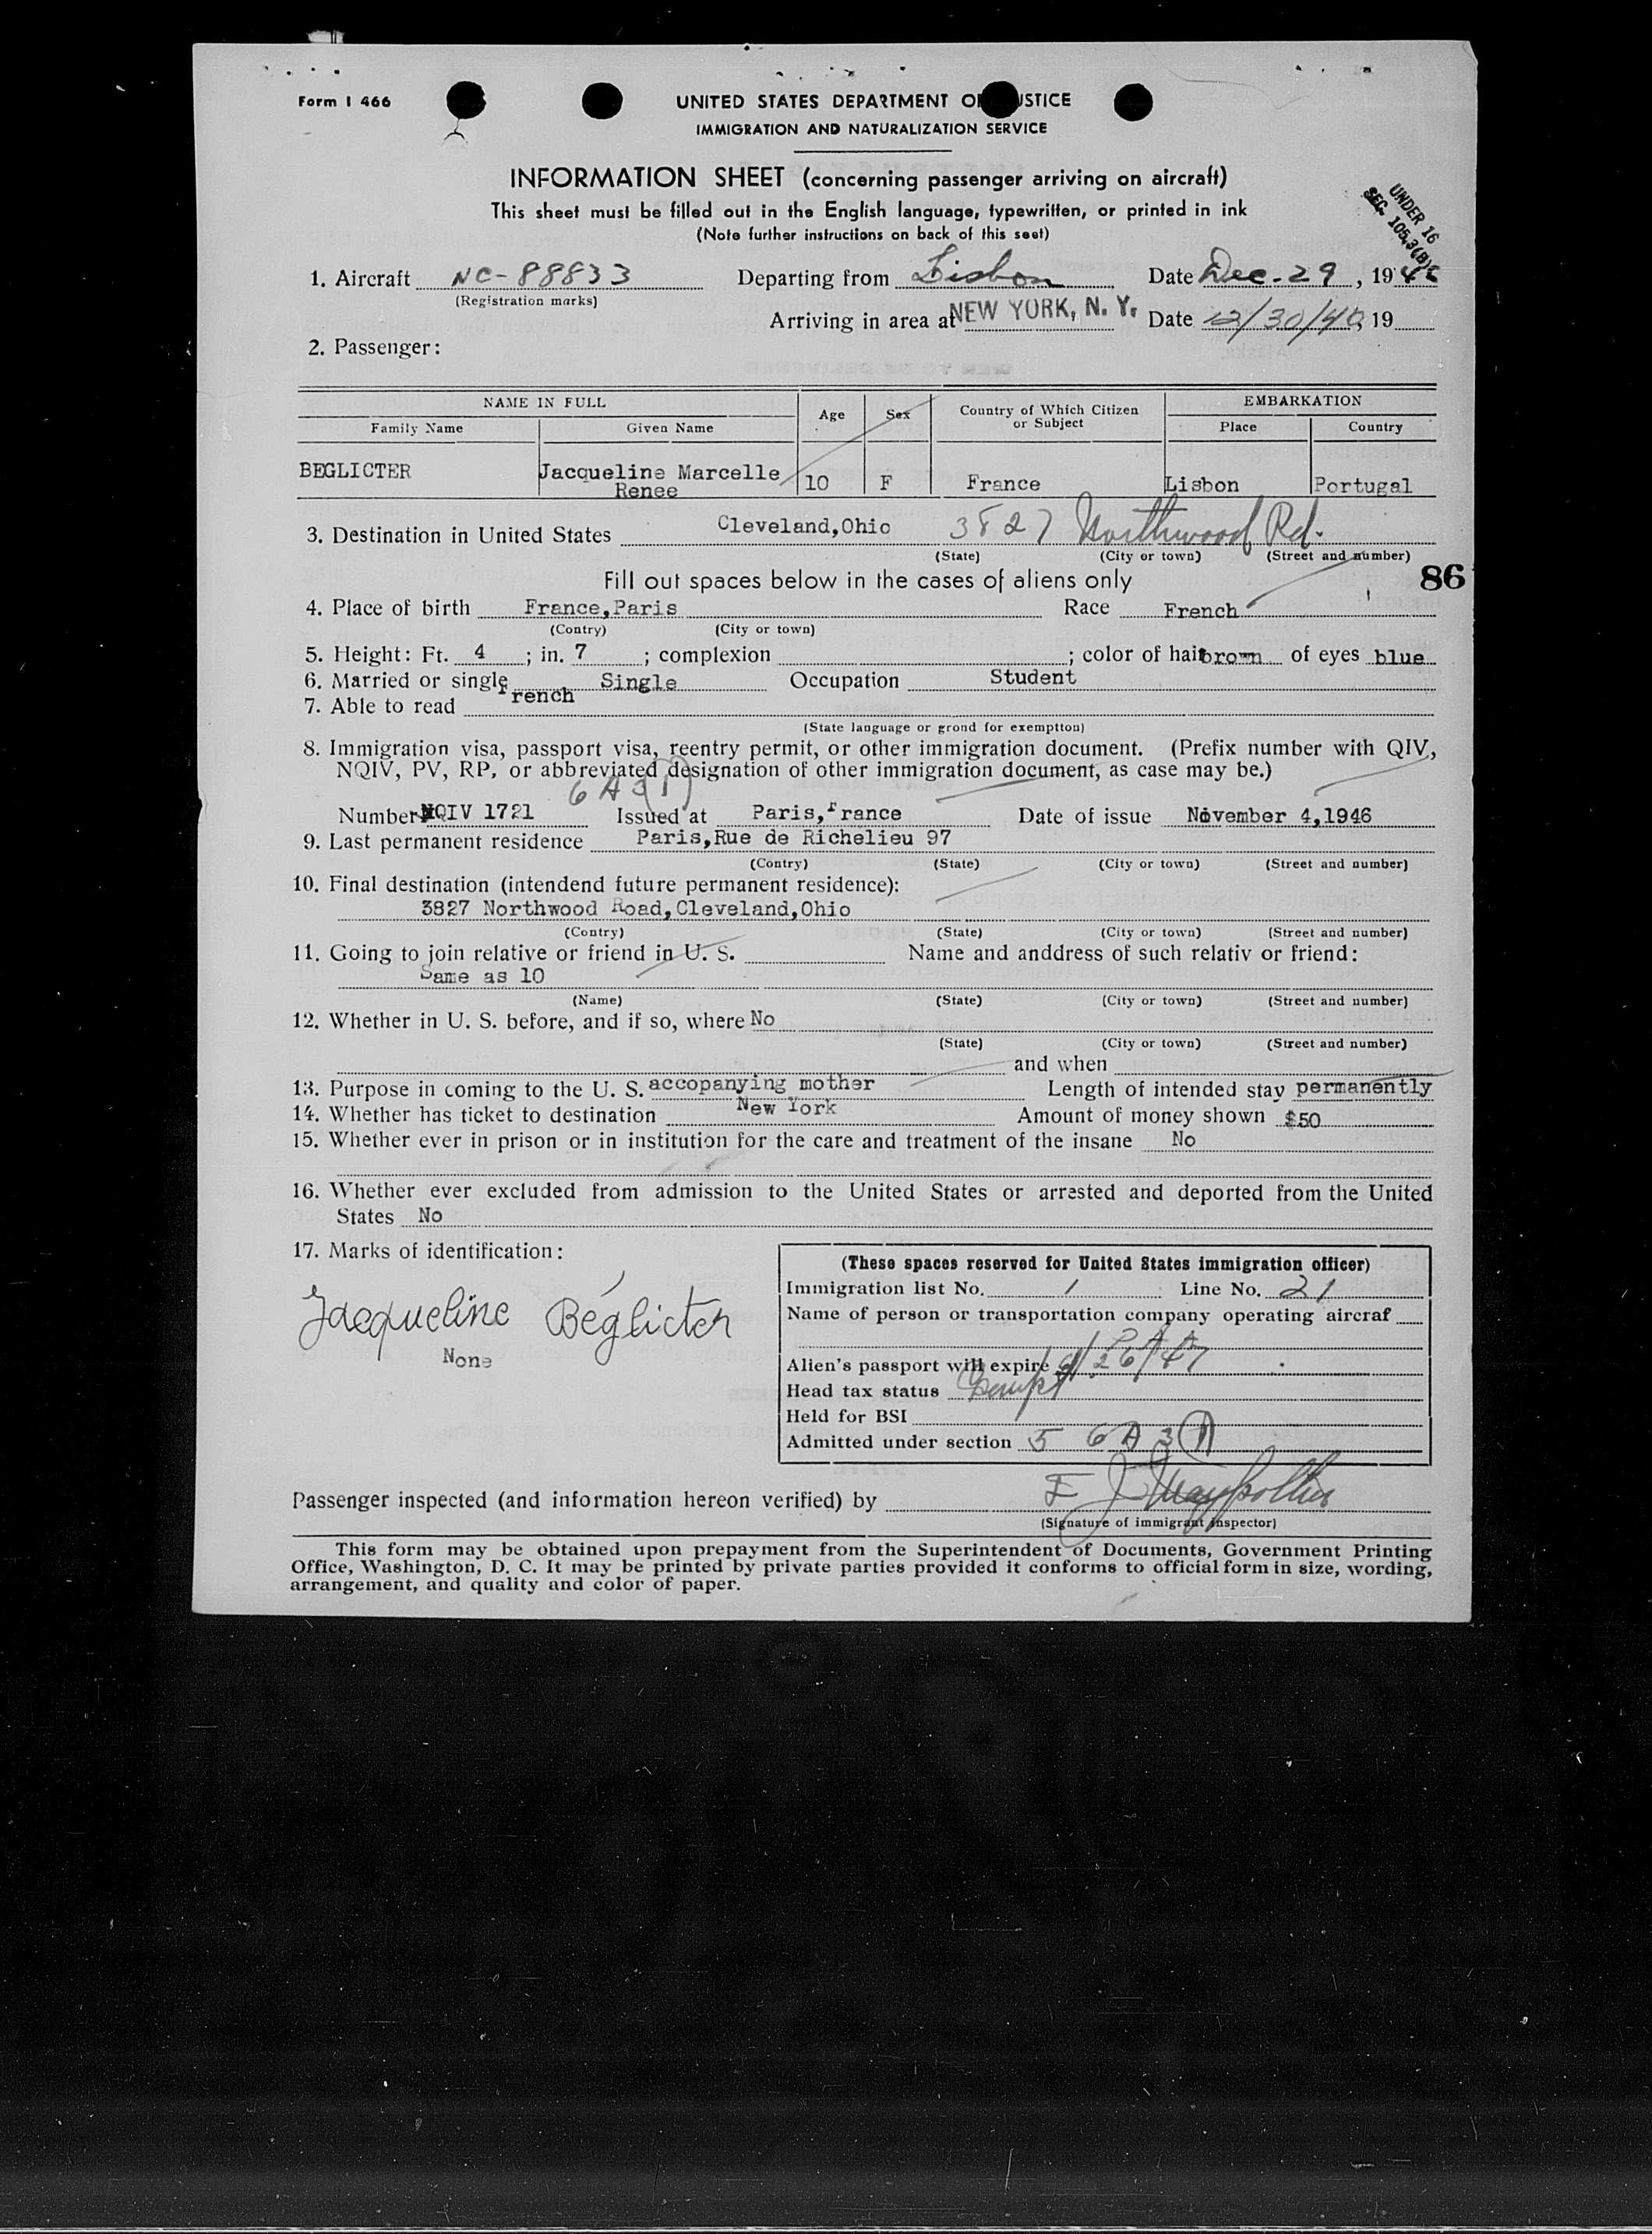 Form I 466
UNITED STATES DEPARTMENT OF JUSTICE
IMMIGRATION AND NATURALIZATION SERVICE
INFORMATION SHEET (concerning passenger arriving on aircraft)
This sheet must be filled out in the English language, typewritten, or printed in ink
(Note further instructions on back of this seet)
UNDER 16
SEC. 105.3(B)
1. Aircraft NC-88833 Departing from Lisbon Date Dec-29, 1946
(Registration marks)
Arriving in area at NEW YORK, N. Y. Date 12/30/46, 19
2. Passenger:
NAME IN FULL Age Sex Country of Which Citizen or Subject EMBARKATION
Family Name Given Name Place Country
BEGLICTER Jacqueline Marcelle Renee 10 F France Lisbon Portugal
3. Destination in United States Cleveland,Ohio 3827 Northwood Rd.
(State) (City or town) (Street and number)
Fill out spaces below in the cases of aliens only 86
4. Place of birth France,Paris Race French
(Contry) (City or town)
5. Height: Ft. 4 ; in. 7 ; complexion ; color of hair brown of eyes blue
6. Married or single Single Occupation Student
7. Able to read French
(State language or grond for exemption)
8. Immigration visa, passport visa, reentry permit, or other immigration document. (Prefix number with QIV,
NQIV, PV, RP, or abbreviated designation of other immigration document, as case may be.)
6 A 3 (1)
Number NQIV 1721 Issued at Paris,France Date of issue November 4,1946
9. Last permanent residence Paris,Rue de Richelieu 97
(Contry) (State) (City or town) (Street and number)
10. Final destination (intendend future permanent residence):
3827 Northwood Road,Cleveland,Ohio
(Contry) (State) (City or town) (Street and number)
11. Going to join relative or friend in U. S. Name and anddress of such relativ or friend:
Same as 10
(Name) (State) (City or town) (Street and number)
12. Whether in U. S. before, and if so, where No
(State) (City or town) (Street and number)
and when
13. Purpose in coming to the U. S. accopanying mother Length of intended stay permanently
14. Whether has ticket to destination New York Amount of money shown $50
15. Whether ever in prison or in institution for the care and treatment of the insane No
16. Whether ever excluded from admission to the United States or arrested and deported from the United
States No
17. Marks of identification:
Jacqueline Béglicter
None
(These spaces reserved for United States immigration officer)
Immigration list No. 1 Line No. 21
Name of person or transportation company operating aircraf
P A A
Alien's passport will expire 9/26/47
Head tax status Exempt
Held for BSI
Admitted under section 5 6 A 3 (1)
Passenger inspected (and information hereon verified) by E J
(Signature of immigrant inspector)
This form may be obtained upon prepayment from the Superintendent of Documents, Government Printing
Office, Washington, D. C. It may be printed by private parties provided it conforms to official form in size, wording,
arrangement, and quality and color of paper.